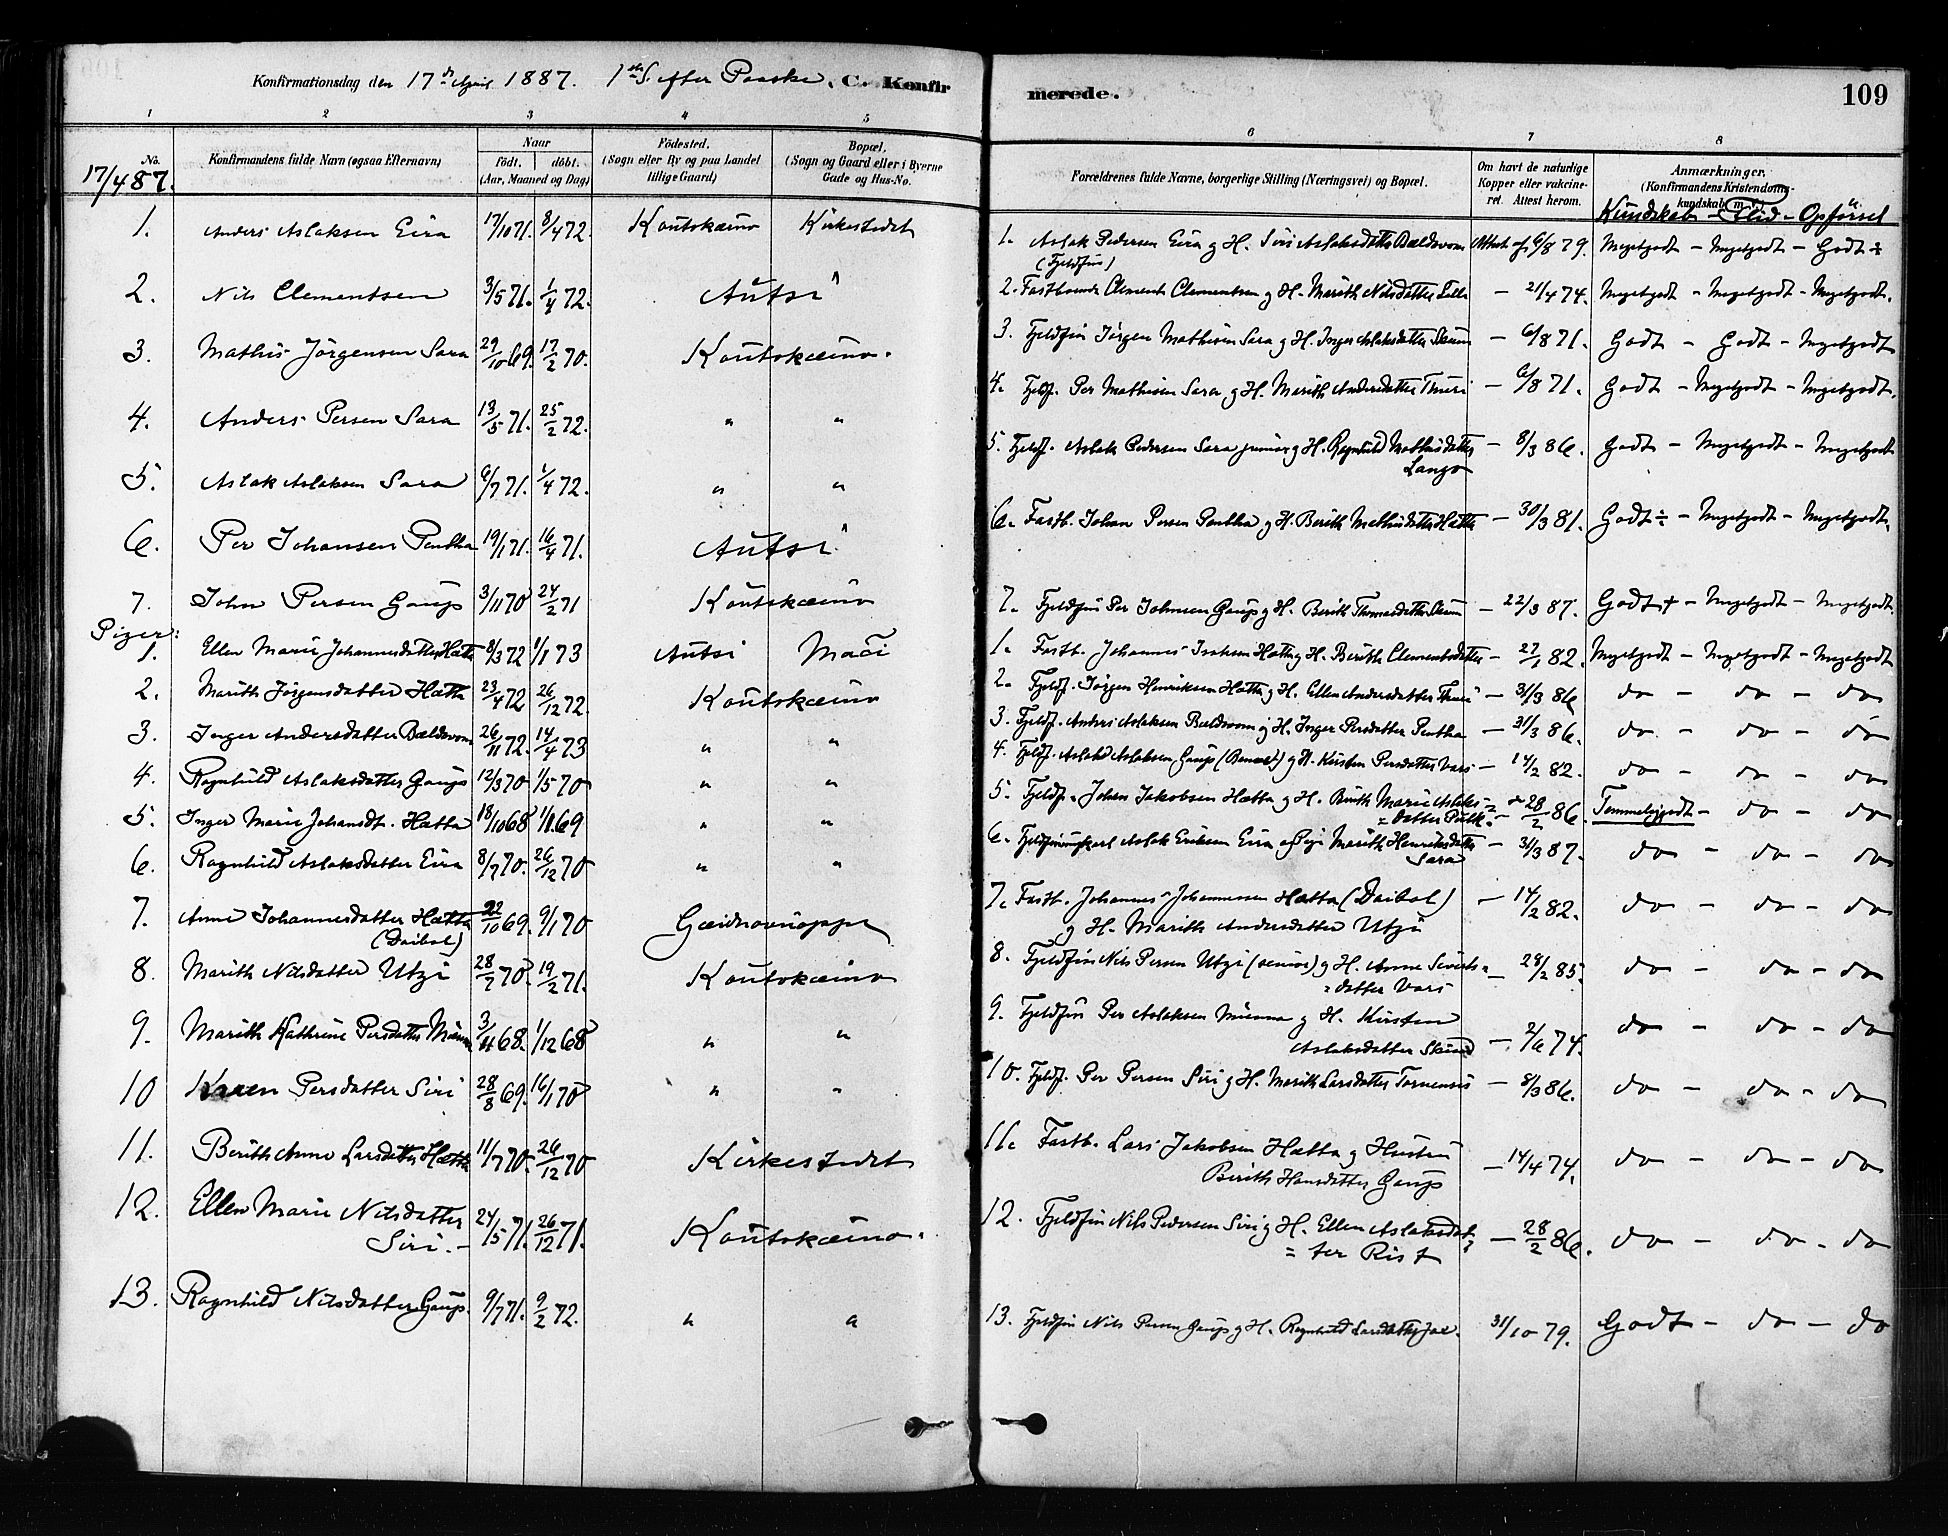 Konfirmationsdag den 17de April 1887. 1ste S. efter Paaske. C. Konfir
1 2 3 4 5
No. Konfirmandens fulde Navn (ogsaa Efternavn) Naar Födt. döbt. (Aar, Maaned og Dag) Födested. (Sogn eller By og paa Landet tillige Gaard) Bopæl. (Sogn og Gaard eller i Byerne Gade og Hus-No.
17/4 87.
1. Anders Aslaksen Eira 17/10 71. 8/4 72. Koutokæino Kirkestedet
2. Nils Clementsen 3/5 71. 1/4 72. Autsi "
3. Mathis Jörgensen Sara 29/10 69. 17/2 70. Koutokæino.
4. Anders Persen Sara 13/5 71. 25/2 72. " "
5. Aslak Aslaksen Sara 6/7 71. 1/4 72. " "
6. Per Johansen Pentha 19/1 71. 16/4 71. Autsi "
7. John Persen Gaup 3/11 70 24/2 71 Koutokæino
Piger:
1. Ellen Marie Johannesdatter Hætta 8/3 72 1/1 73 Autsi Maci
2. Marith Jörgensdatter Hætta 23/4 72 26/12 72. Koutokæino
3. Inger Andersdatter Bældovom 26/11 72. 14/4 73 " "
4. Ragnhild Aslaksdatter Gaup 12/3 70 1/5 70 " "
5. Inger Marie Johansdt. Hætta 18/10 68 1/1 69 " "
6. Ragnhild Aslaksdatter Eira 8/7 70. 26/12 70 " "
7. Anne Johannesdatter Hætta 22/10 69. 9/1 70 Gæidnovuoppe
(Daibal)
8. Marith Nilsdatter Utzi 28/2 70. 19/2 71. Koutokæino
9. Marith Kathrine Persdatter 3/11 68. 1/12 68 " "
10 Karen Persdatter Siri 28/8 69. 16/1 70 " "
11. Berith Anne Larsdatter Hætta 11/7 70. 26/12 70 Kirkestedet
12. Ellen Marie Nilsdatter
Siri. 24/5 71. 26/12 71. Koutokæino.
13. Ragnhild Nilsdatter Gaup. 9/7 71. 9/2 72. " "
merede. 109
6 7 8
Forældrenes fulde Navne, borgerlige Stilling (Næringsvei) og Bopæl. Om havt de naturlige Kopper eller vakcineret. Attest herom. Anmærkninger. (Konfirmandens Kristendomskundskab m. v.)
Kundskab - Flid - Opförsel
1. Aslak Pedersen Eira og H. Siri Aslaksdatter Bældovom Attest af 6/8 79. Megetgodt - Megetgodt - Godt ÷
(Fjeldfin)
2. Fastboende Clement Clementsen og H. Marith Nilsdatter - 21/4 74. Megetgodt - Megetgodt - Megetgodt.
3. Fjeldfin Jörgen Mathisen Sara og H. Inger Aslaksdatter Skum - 6/8 71. Godt - Godt - Megetgodt
4. Fjeldf. Per Mathisen Sara og H. Marith Andersdatter Thuri - 6/8 71. Godt - Megetgodt - Megetgodt.
5. Fjeldf. Aslak Pedersen Sara junior og H. Ragnhild Mathisdatter - 8/3 86. Godt - Megetgodt - Megetgodt
Lango
6. Fastb. Johan Persen Pentha og H. Berith Mathisdatter Hætta - 30/3 81. Godt ÷ - Megetgodt - Megetgodt.
7. Fjeldfin Per Johnsen Gaup og H. Berith Thomasdatter Skum - 22/3 87. Godt + - Megetgodt - Megetgodt.
1. Fastb. Johannes Isaksen Hætta og H. Berith Clementsdatter - 27/1 82. Megetgodt - Megetgodt - Megetgodt
2. Fjeldf. Jörgen Henriksen Hætta og H. Ellen Andersdatter Thuri - 31/3 86 do - do - do
3. Fjeldf. Anders Aslaksen Bældovom og H. Inger Persdatter Pentha - 31/3 86. do - do - do
4. Fjeldf. Aslak Aslaksen Gaup og H. Kirsten Persdatter Vars - 14/2 82. do - do - do
5. Fjeldf. Johan Jakobsen Hætta og H. Berith Marie Aslaks=
=datter Pulk. - 28/2 86. Temmeliggodt - do - do
6. Fjeldfinungkarl Aslak Eriksen Eira og Pige Marith Henriksdatter - 31/3 87. do - do - do
Sara
7. Fastb. Johannes Johannesen Hætta (Daibal) - 14/2 82. do - do - do
og H. Marith Andersdatter Utzi
8. Fjeldfin Nils Persen Utzi (senior) og H. Anne Siverts= - 28/2 85. do - do - do
=datter Vars
9. Fjeldfin Per Aslaksen og H. Kirsten
Aslaksdatter - 2/6 74. do - do - do
10. Fjeldf. Per Persen Siri og H. Marith Larsdatter Tornensis - 8/3 86. do - do - do
11. Fastb. Lars Jakobsen Hætta og Hustru
Berith Hansdatter Gaup - 14/4 74. do - do - do
12. Fjeldfin Nils Pedersen Siri og H. Ellen Aslaksdat= - 28/2 86. do - do - do
=ter Rist
13. Fjeldfin Nils Persen Gaup og H. Ragnhild Larsdatter 31/10 79. Godt - do - do